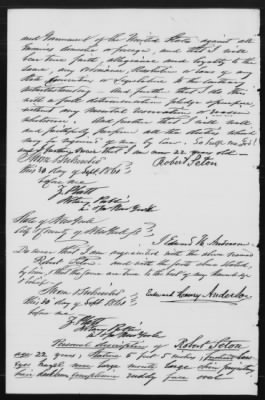 and Government of the United States against all
enemies domestic or foreign, and that I will
bear true faith, allegiance and loyalty to the
same, any ordinance, Resolution or Laws of any
State Convention or Legislature to the contrary
notwithstanding. And further, that I do this
with a full determination, pledge & purpose,
without any mental reservation or evasion
whatsoever. And further, that I will well
and faithfully perform all the duties which
may be required of me by law. So help me God!
and further swear that I am now 22 years old
Robert Seton
Sworn & subscribed
this 20 day of Sept. 186
before me
Notary Public
New York
State of New York
City & County of New York ss
I Edward H. Anderson
Do swear that I am acquainted with the above named
Robert Seton. And with the facts above stated,
by him, & that the same are true to the best of my knowledge
& belief
Edward Henry Anderson
Sworn & subscribed
this 20 day of Sept 186
before me
Notary Public
New York
Personal description of Robert Seton
age 22 years, Stature 5 feet 5 inches,
eyes hazel, nose large mouth large chin
hair complexion ruddy face oval